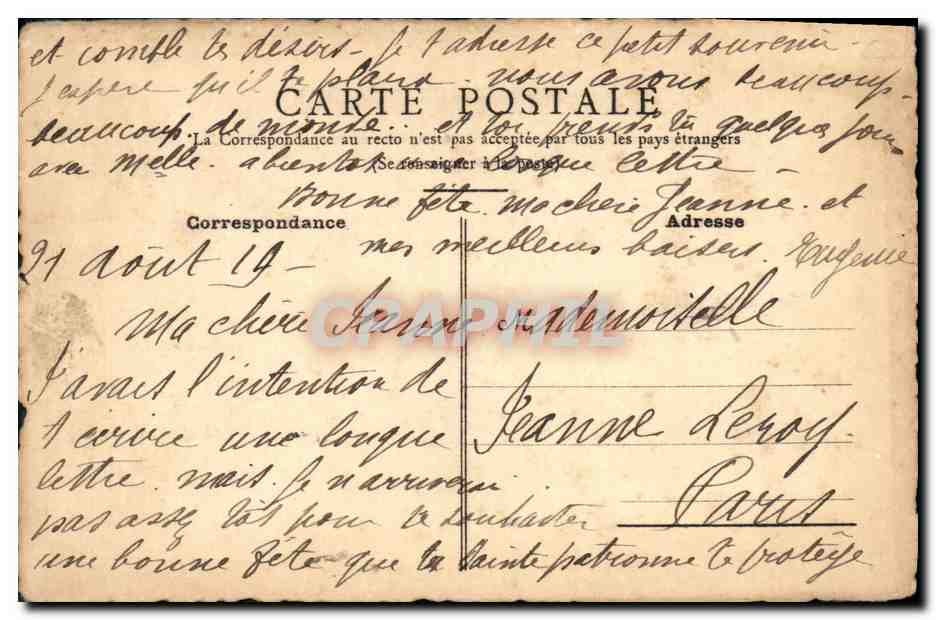 et comble tes désirs – Je t'adresse ce petit souvenir –
J'espère qu'il te plaira. nous avons beaucoup,
CARTE POSTALE
beaucoup de monde.. et toi quelques jours
La Correspondance au recto n'est pas acceptée par tous les pays étrangers
avec Melle. a bientot longue lettre –
(Se renseigner à la poste)
Bonne fête ma chère Jeanne et
Correspondance
Adresse
mes meilleurs baisers. Eugenie
21 août 19 –
CPAPHIL
Ma chère Jeanne
Mademoiselle
J'avais l'intention de
t'ecrire une longue
Jeanne Leroy.
lettre. mais je n'arriverai
Paris
pas assez tôt pour te souhaiter
une bonne fête que ta Sainte patronne te protège